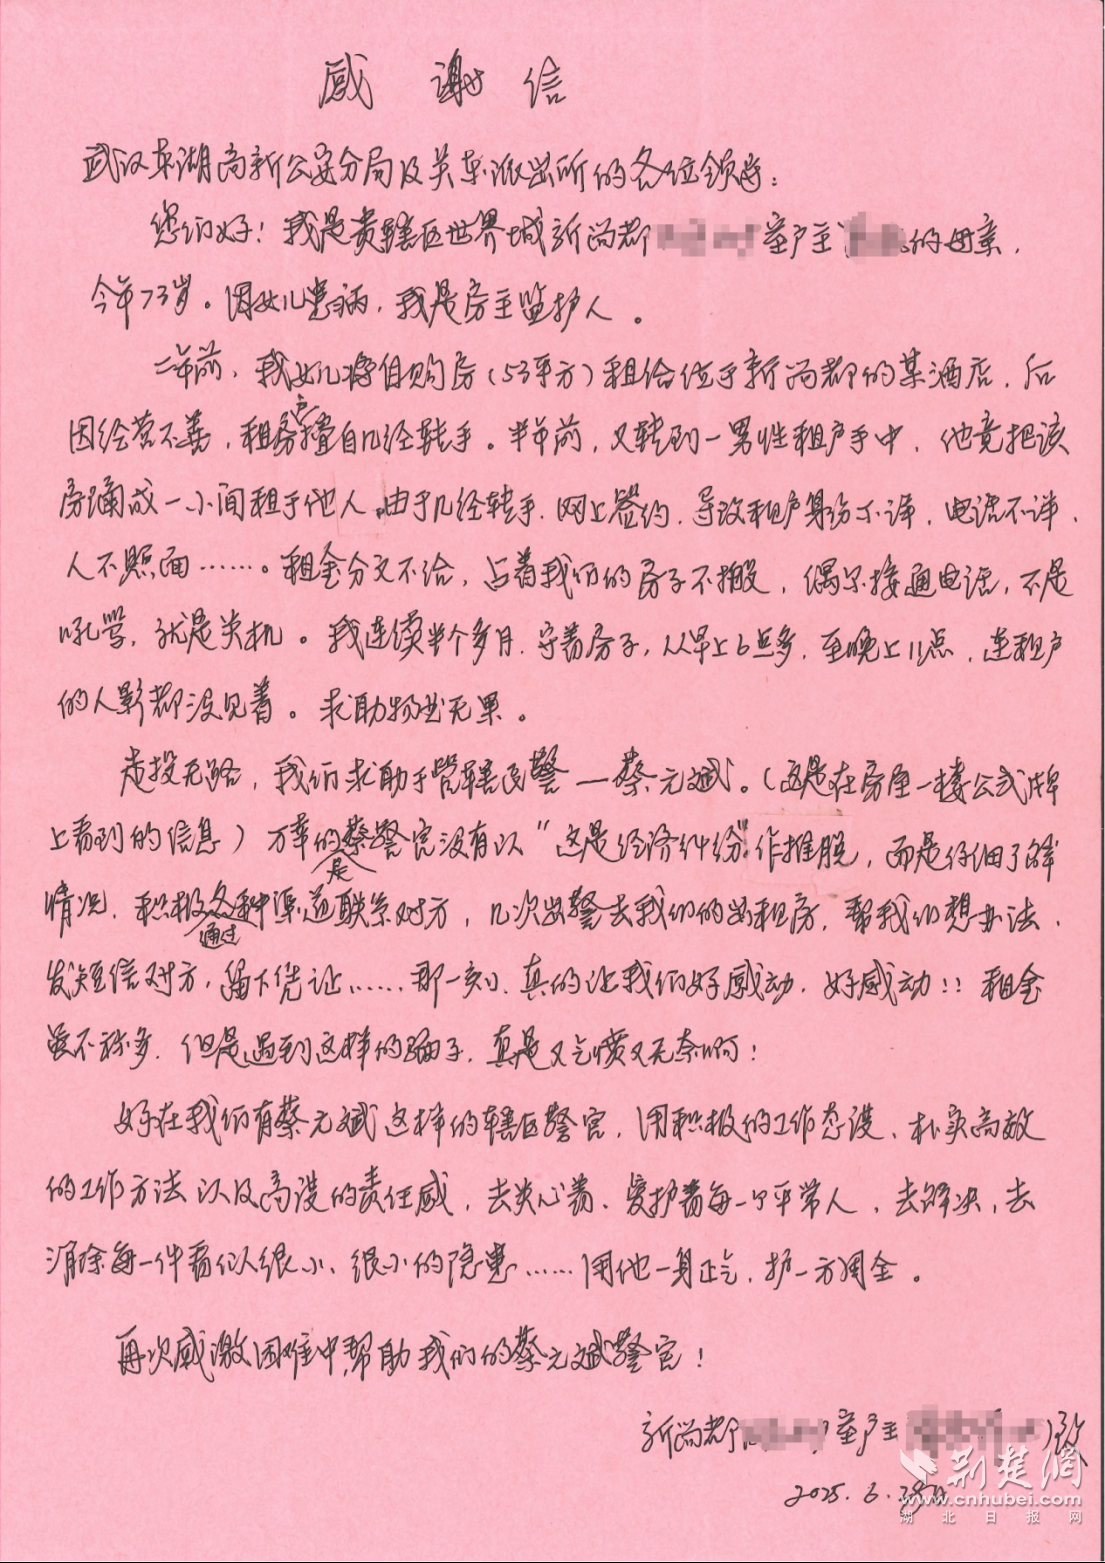 感谢信
武汉东湖高新公安分局及关东派出所的各位领导：
您们好！我是贵辖区世界城新尚都 室户主 的母亲，
今年73岁。因女儿患病，我是房主监护人。
二年前，我女儿将自购房（53平方）租给位于新尚都的某酒店，后
因经营不善，租房户擅自几经转手。半年前，又转到一男性租户手中，他竟把该
房隔成一小间租于他人，由于几经转手，网上签约，导致租户身份不详，电话不详，
人不照面……。租金分文不给，占着我们的房子不搬，偶尔接通电话，不是
吼骂，就是关机。我连续半个多月，守着房子，从早上6点多，至晚上11点，连租户
的人影都没见着。求助物业无果。
走投无路，我们求助于管辖民警—蔡元斌。（这是在房屋一楼公式牌
上看到的信息）万幸的是蔡警官没有以“这是经济纠纷”作推脱，而是仔细了解
情况，积极通过各种渠道联系对方，几次出警去我们的出租房，帮我们想办法，
发短信对方，留下凭证……那一刻，真的让我们好感动，好感动！！租金
虽不称多，但是遇到这样的骗子，真是又气愤又无奈啊！
好在我们有蔡元斌这样的辖区警官，用积极的工作态度、朴实高效
的工作方法以及高度的责任感，去关心着、爱护着每一个平常人，去解决，去
消除每一件看似很小、很小的隐患……用他一身正气，护一方周全。
再次感激困难中帮助我们的蔡元斌警官！
新尚都 室户主 致
2025.6.
荆楚网
www.cnhubei.com
湖北日报网